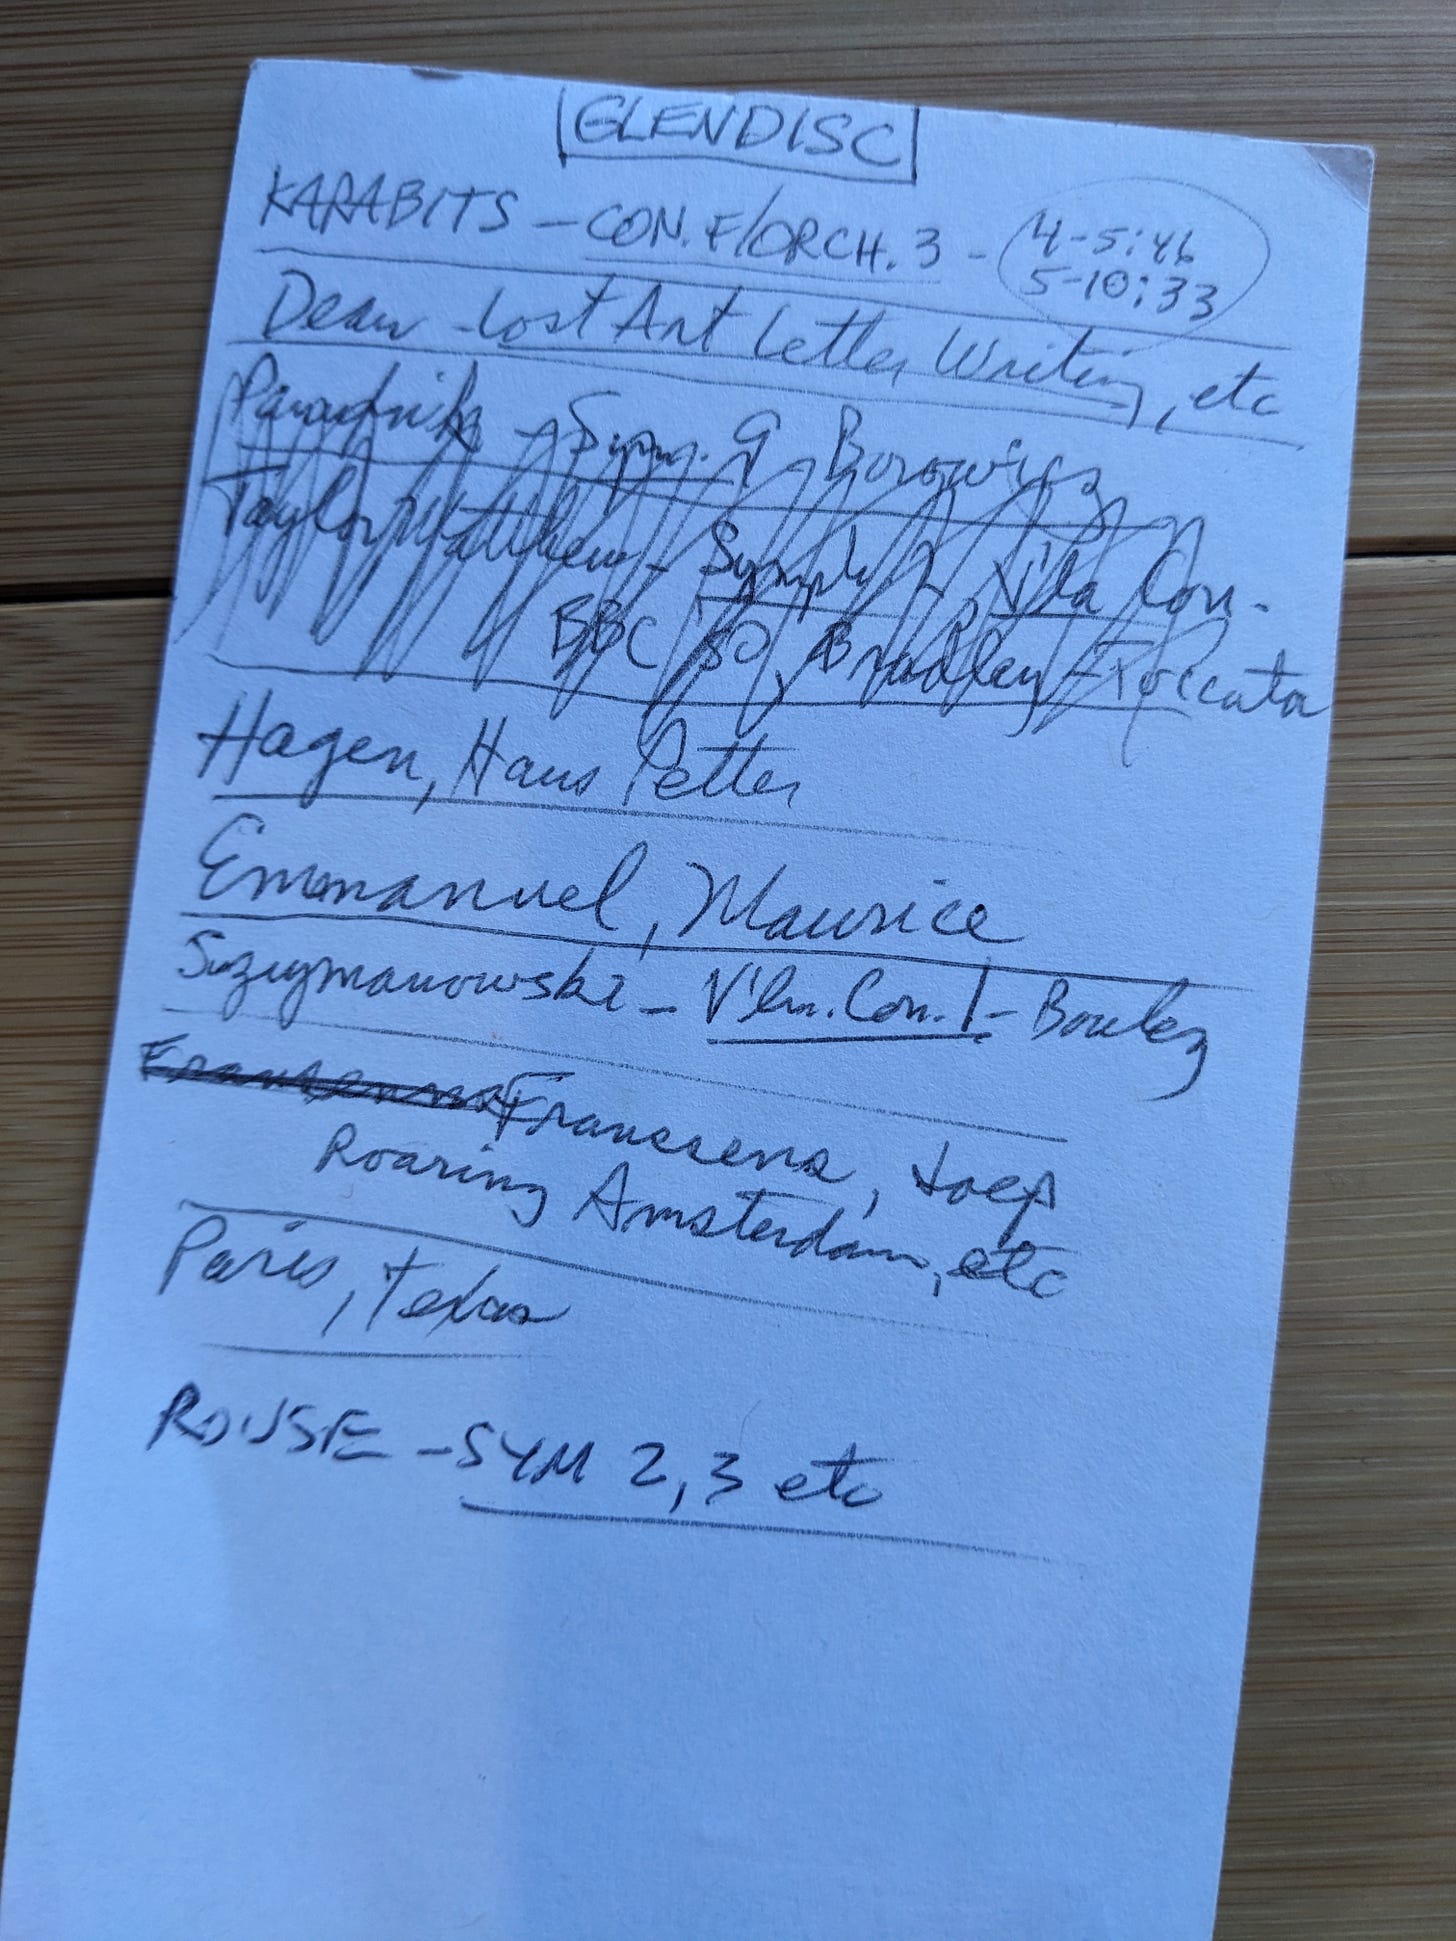 GLENDISC
KARABITS – CON. F/ORCH. 3 – 4-5:46
5-10:33
Dean – Lost Art Letter Writing, etc
Panufnik – Sym. 9 Borowicz
Taylor, Matthew – Symph. 2, V'la Con.
BBC SO, Bradley – Toccata
Hagen, Hans Petter
Emmanuel, Maurice
Suzymanowski – V'ln. Con. 1 – Boulez
Franssens, Joep
Roaring Amsterdam, etc
Paris, Texas
ROUSE – SYM 2, 3 etc